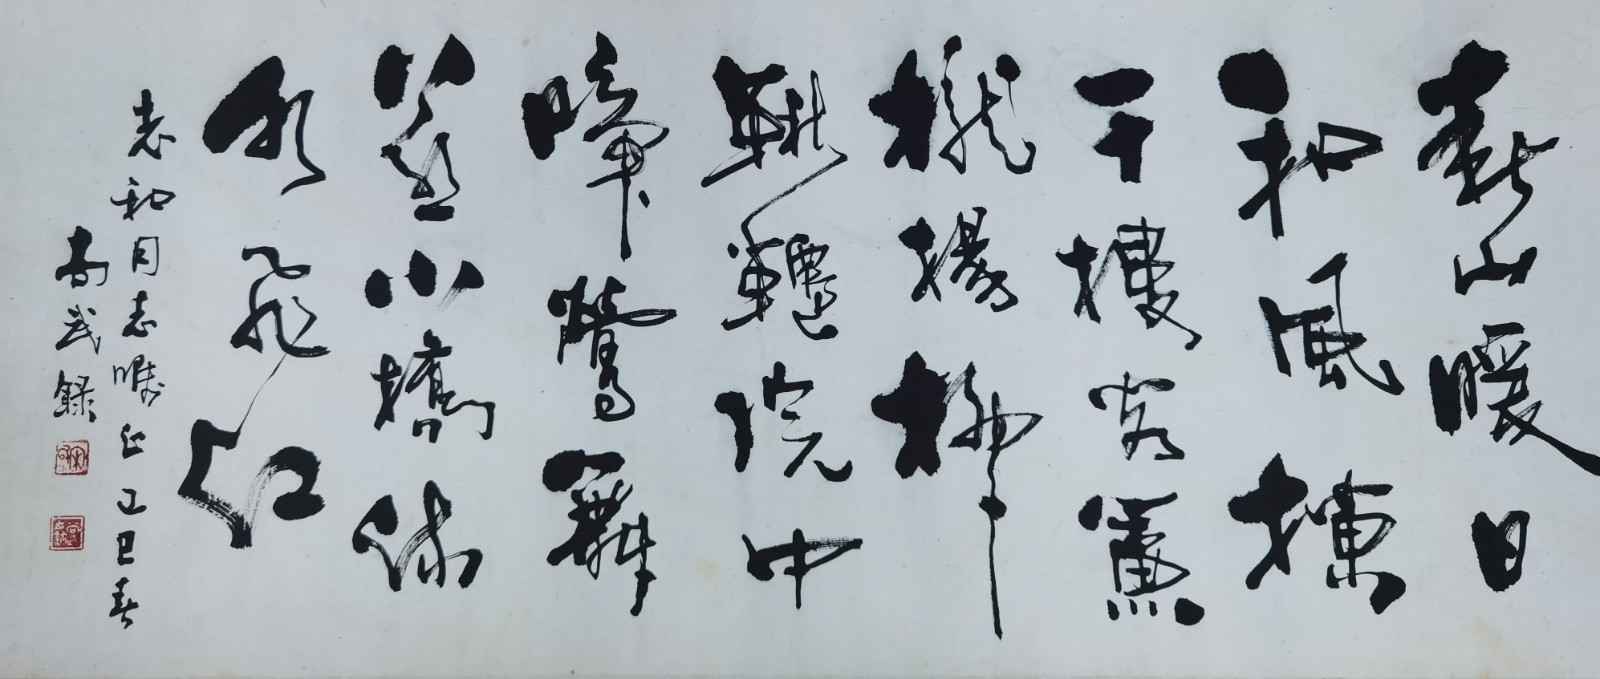 春山暖日
和風欄
干樓閣簾
櫳楊柳
鞦韆院中
啼鶯舞
燕小橋流
水飛紅
志和同志嘱正 己巳春
武録